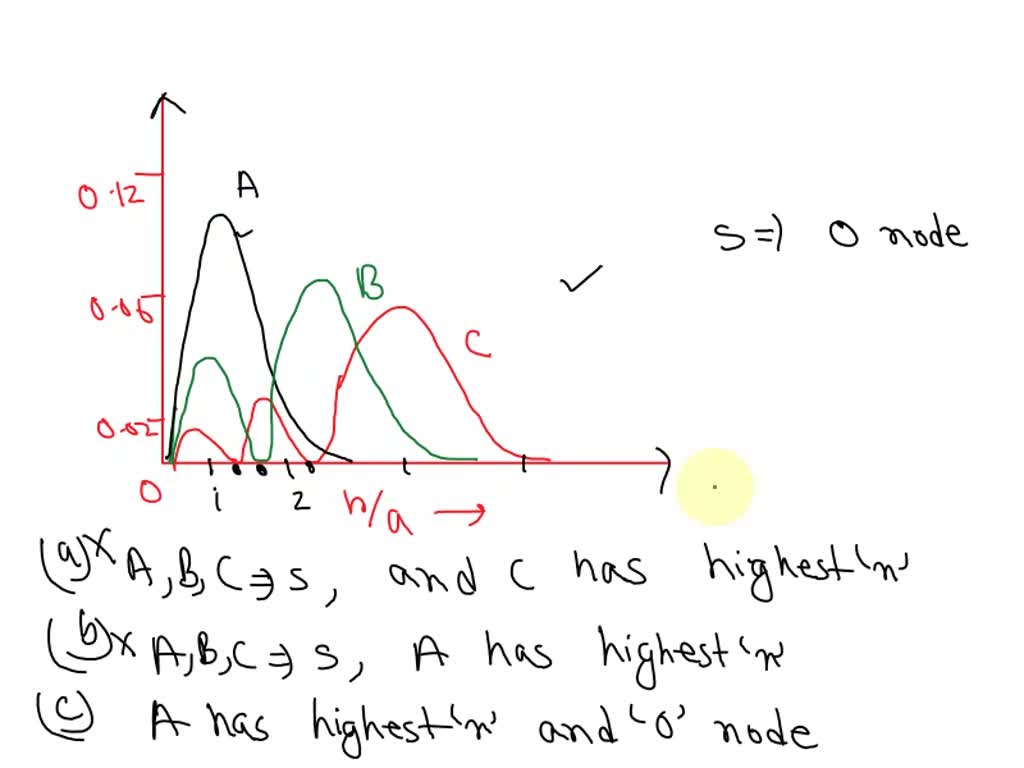 0.12
A
s⇒ 0 node
B
0.06
C
0.02
0
1
2
r/a →
(a)× A,B,C⇒s, and C has highest 'n'
(b)× A,B,C⇒s, A has highest 'n'
(c) A has highest 'n' and '0' node